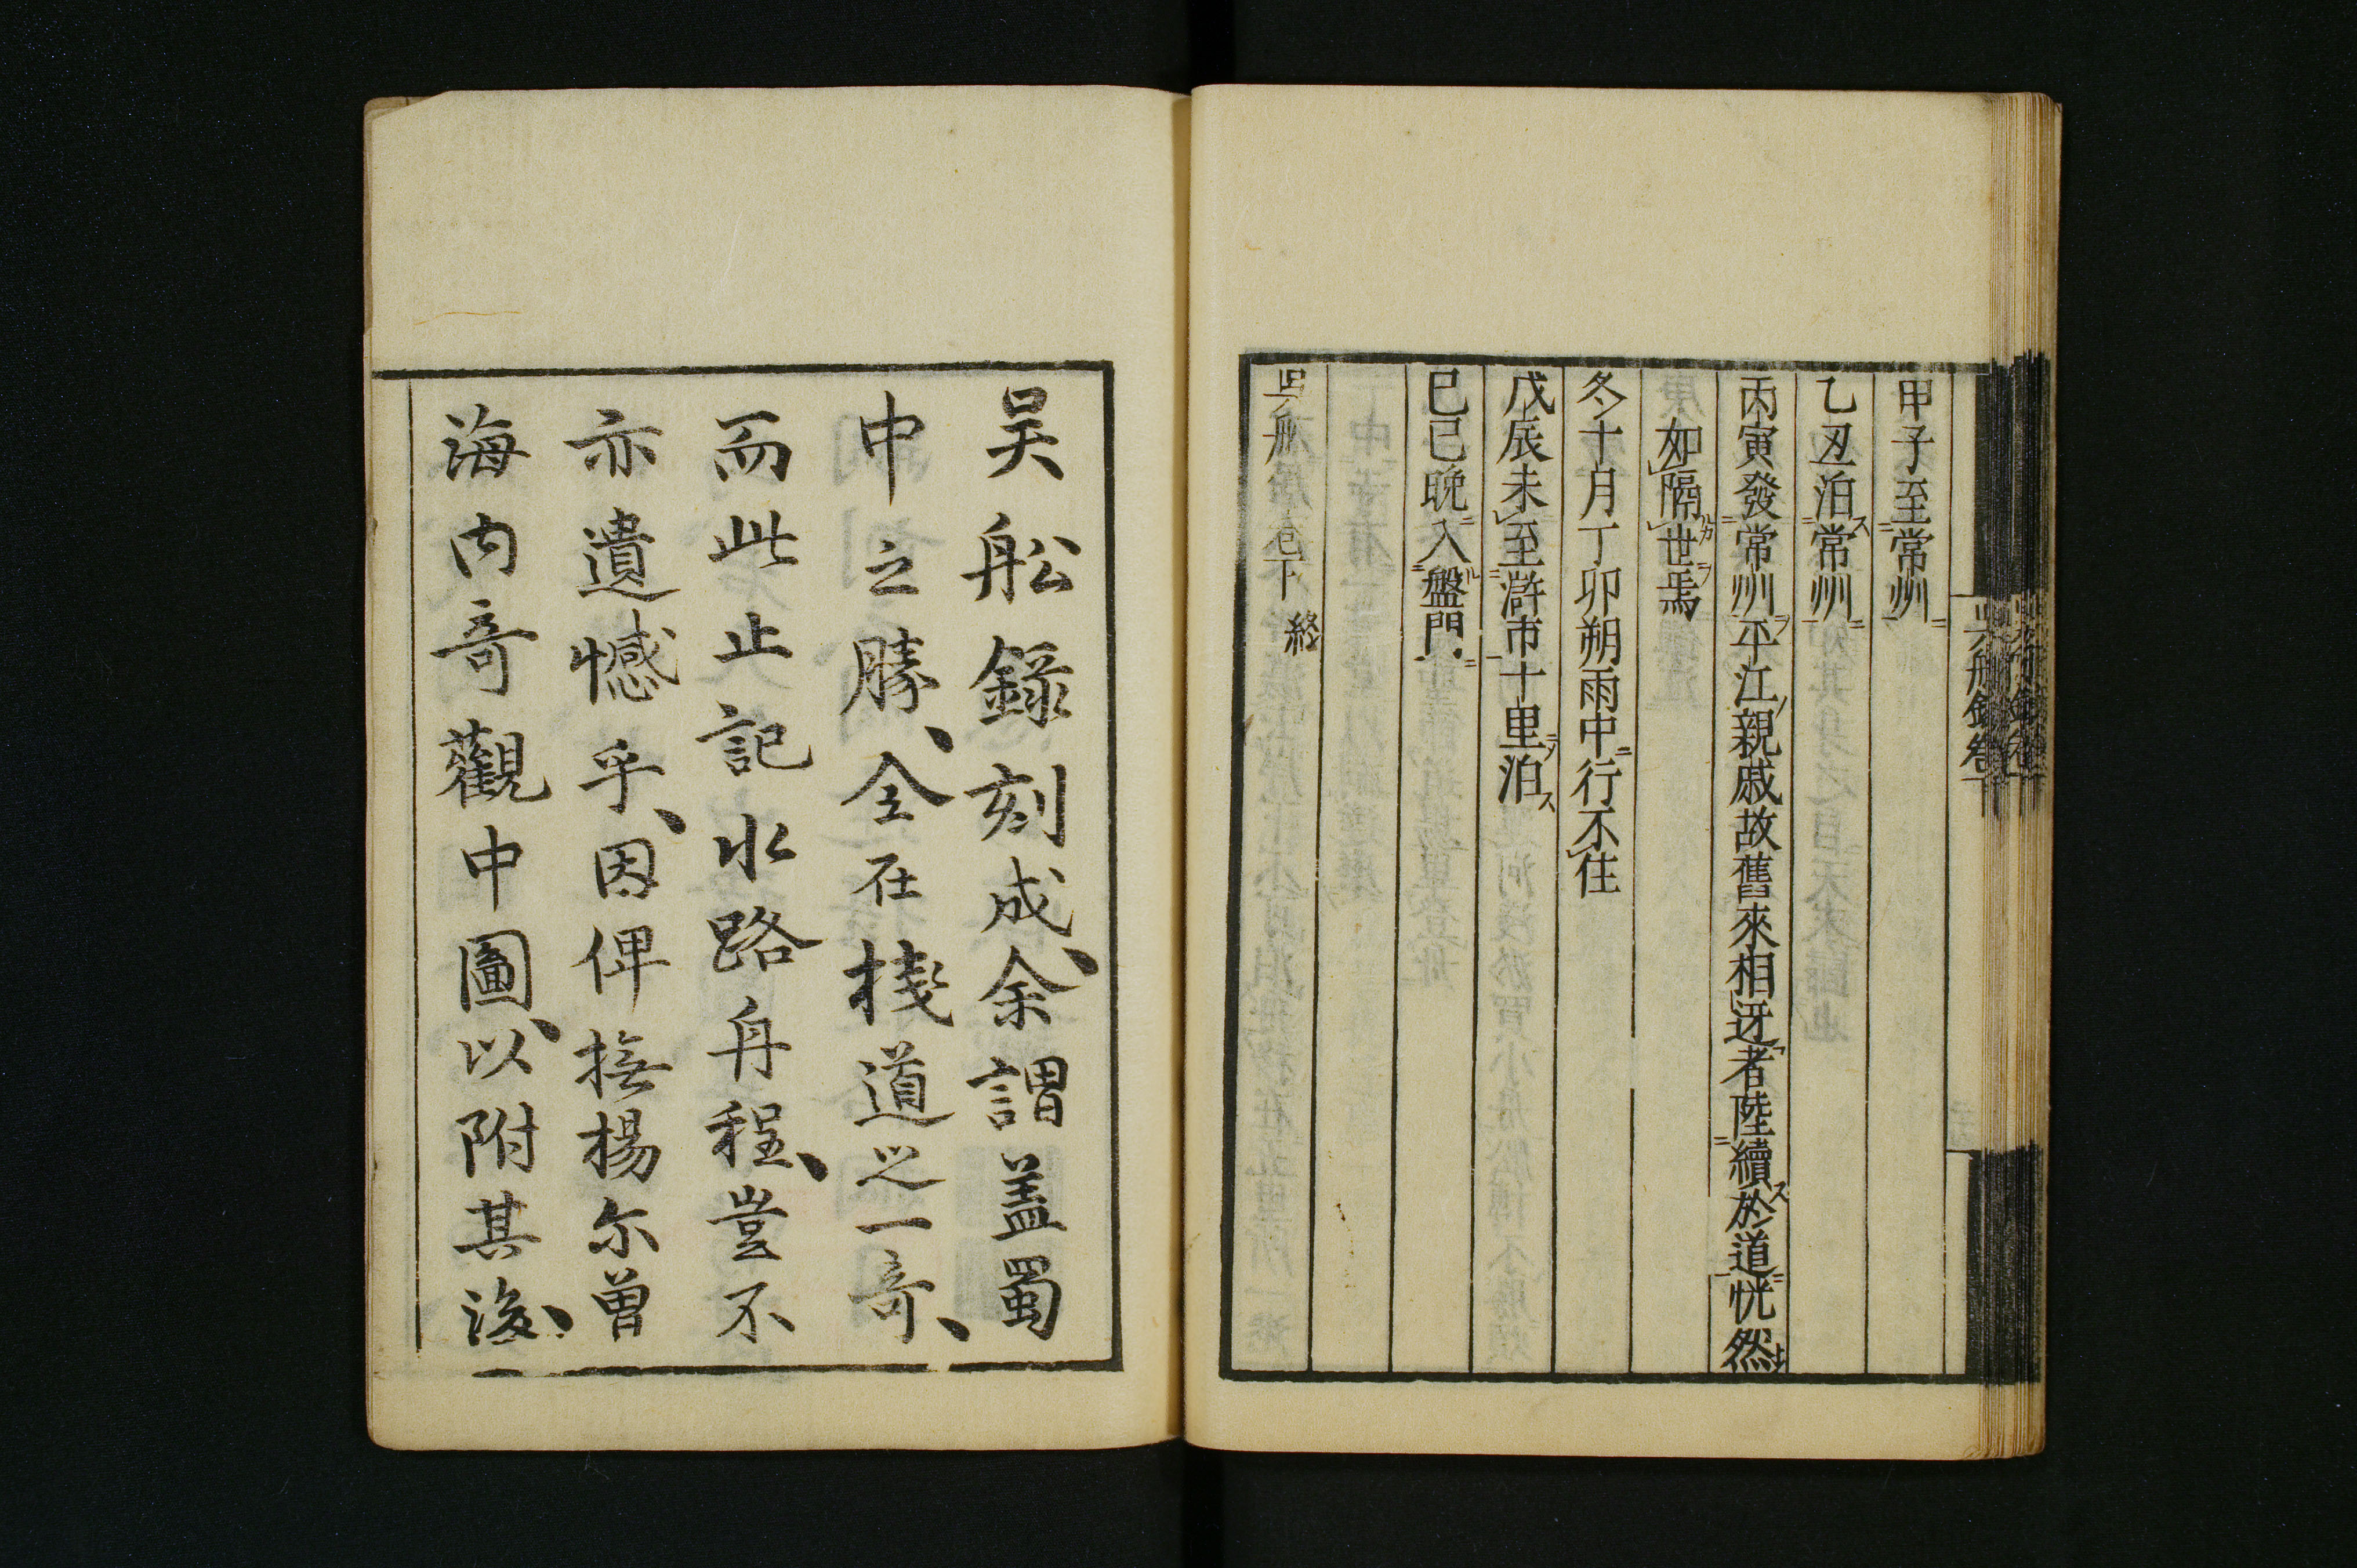 甲子至常州
乙丑泊常州
丙寅發常州平江親戚故舊來相迓者陸續於道恍然
如隔世焉
冬十月丁卯朔雨中行不住
戊辰未至滸市十里泊
巳已晚入盤門
吳船卷下 終
吳舩錄刻成、余謂蓋蜀
中之勝、全在棧道之一奇、
而此止記水路舟程、豈不
亦遺憾乎、因俾撫楊尔曾
海內奇觀中圖、以附其後、